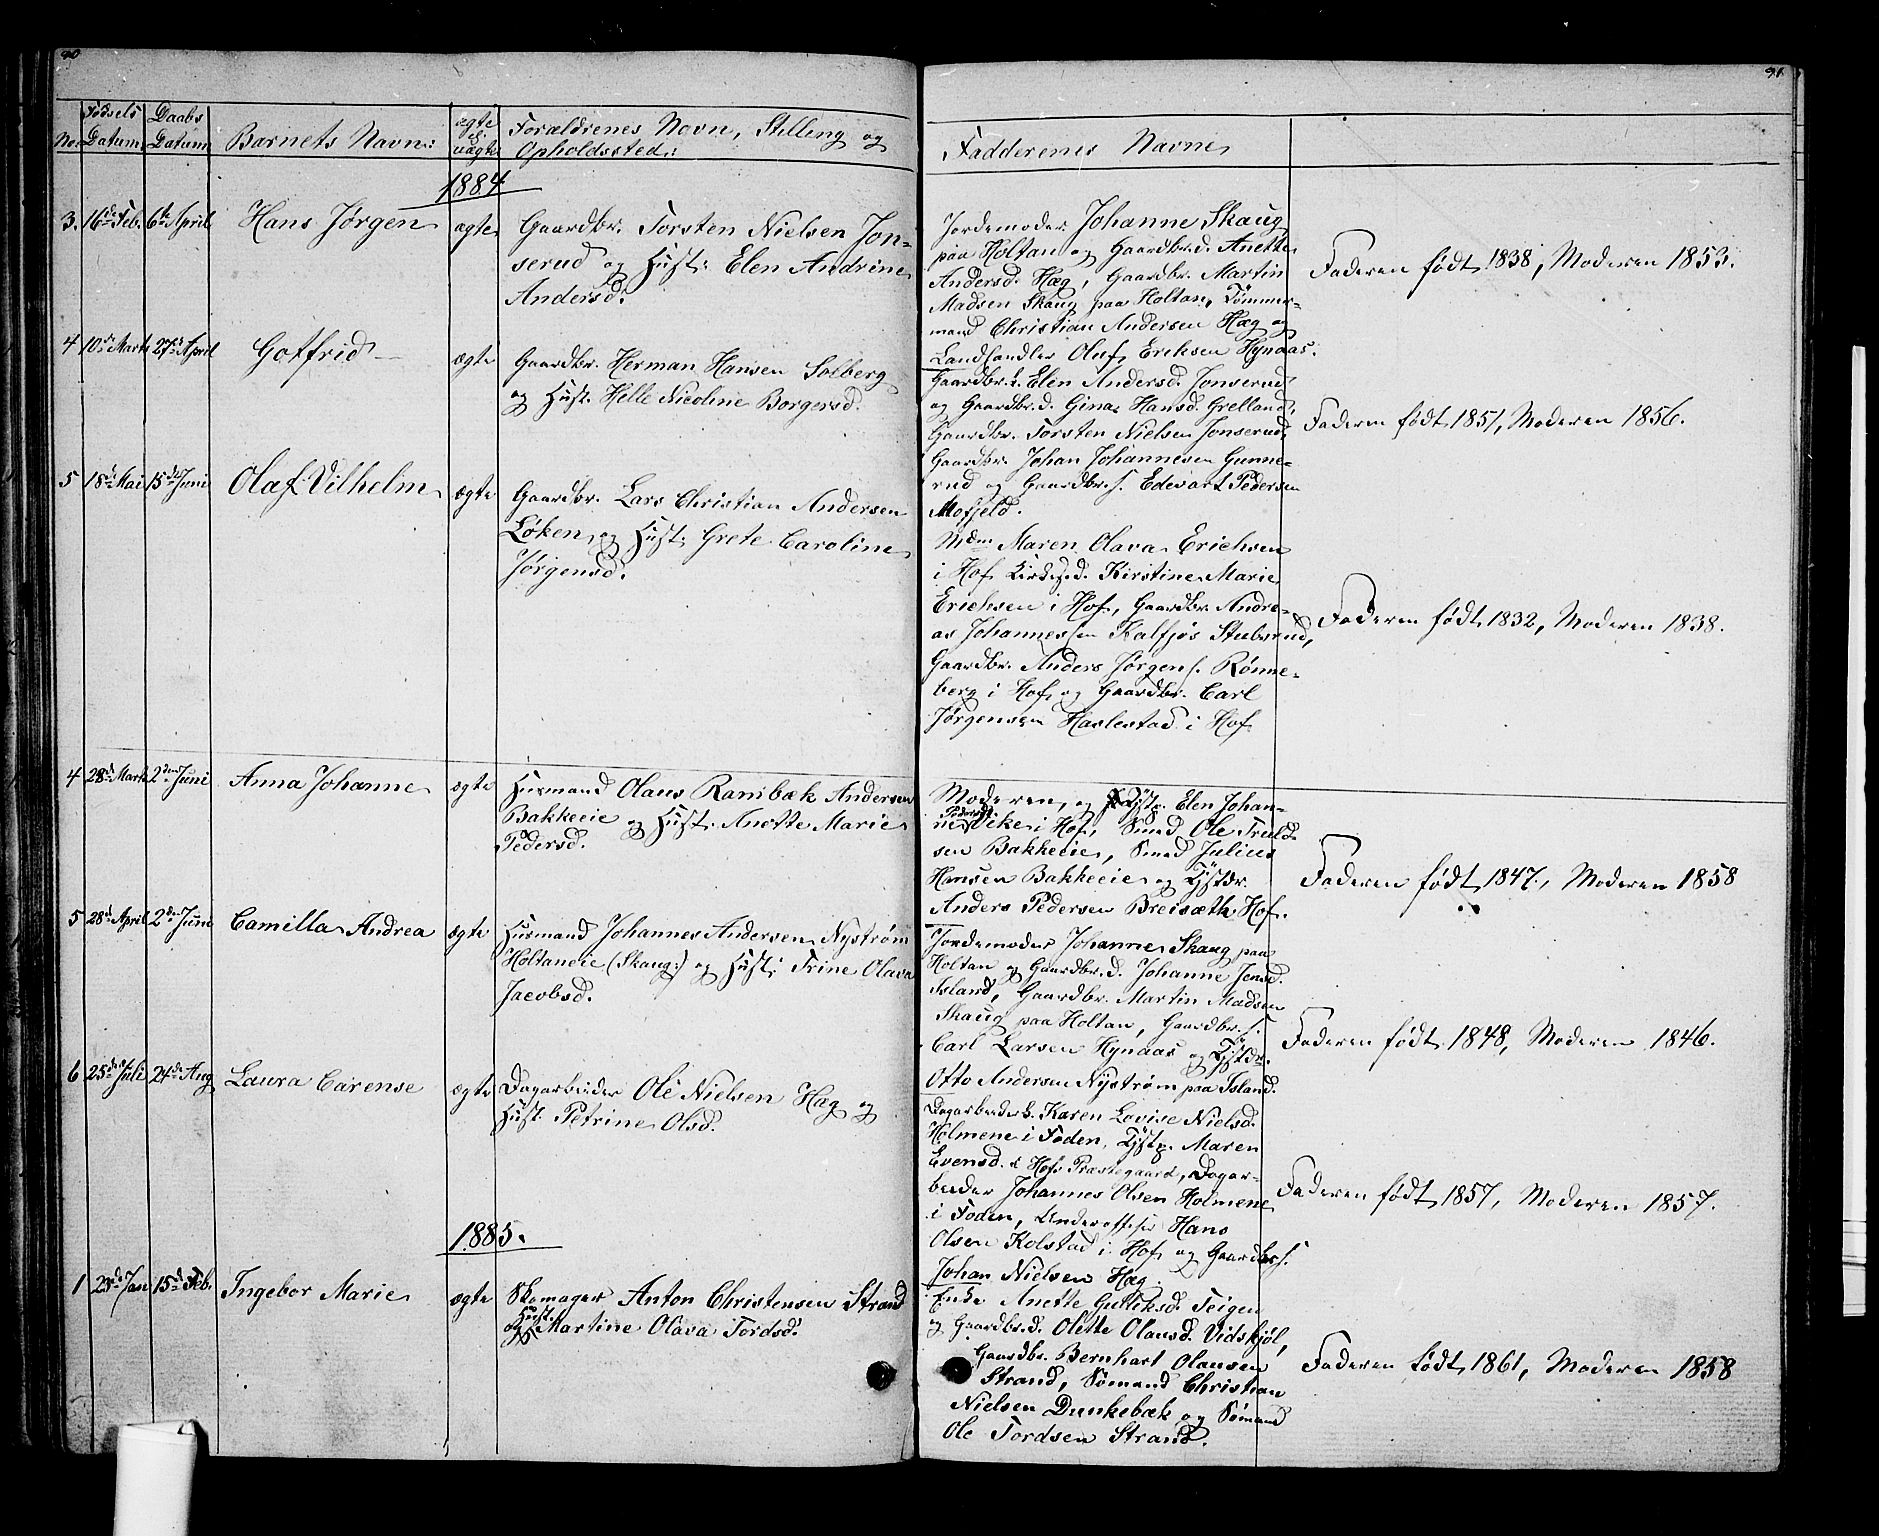 90
91.
No. Fødsels Datum. Daabs Datum Barnets Navn: ægte el. uægte Forældrenes Navn, Stilling og Opholdssted: Fadderenes Navne
1884
3. 16de Feb. 6te April Hans Jørgen ægte
Gaardbr. Torsten Nielsen Jon-
serud og Hust: Elen Andrine
Andersd.
Jordemoder Johanne Skaug
paa Holtan og Gaardbr.d. Anette
Andersd. Hæg, Gaardbr. Martin
Madsen Skaug paa Holtan, Tømmer-
mand Christian Andersen Hæg og
Landhandler Oluf Eriksen Hynaas.
Faderen født 1838, Moderen 1853.
4 10de Marts 27de April Gotfrid ægte
Gaardbr. Herman Hansen Solberg
og Hust. Helle Nicoline Borgersd.
Gaardbr.k. Elen Andersd. Jonserud
og Gaardbr.d. Gina Hansd. Grelland,
Gaardbr. Torsten Nielsen Jonserud,
Gaardbr. Johan Johannesen Gunne-
rud og Gaardbr.s. Edevart Pedersen
Mofjeld.
Faderen født 1851, Moderen 1856.
5 18de Mai 15de Juni Olaf Vilhelm ægte
Gaardbr. Lars Christian Andersen
Løken og Hust: Grete Caroline
Jørgensd.
Mdm Maren Olava Erichsen
i Hof, Kirkes.d. Kirstine Marie
Erichsen i Hof, Gaardbr. Andre-
as Johannessen Kalfjøs Stubsrud,
Gaardbr. Anders Jørgens. Rønne-
berg i Hof og Gaardbr. Carl
Jørgensen Haslestad i Hof
Faderen født 1832, Moderen 1838.
4 28de Marts 2den Juni Anna Johanne ægte
Husmand Olaus Rambæk Andersen
Bakkeeie og Hust: Anette Marie
Pedersd.
Moderen, og Tjstp. Elen Johan-
ne Pedersd. Vike i Hof, Smed Ole Truld-
sen Bakkeeie, Smed Julius
Hansen Bakkeeie og Tjstdr.
Anders Pedersen Breisæth Hof.
Faderen født 1847, Moderen 1858
5 28de April 2den Juni Camilla Andrea ægte
Husmand Johannes Andersen Nystrøm
Holtaneie (Skaug) og Hust: Trine Olava
Jacobsd.
Jordemoder Johanne Skaug paa
Holtan og Gaardbr.d. Johanne Jensd.
Island, Gaardbr. Martin Madsen
Skaug paa Holtan, Gaardbr.s.
Carl Larsen Hynaas og Tjstdr.
Otto Andersen Nystrøm paa Island.
Faderen født 1848, Moderen 1846.
6 25de Juli 24de Aug Laura Carense ægte
Dagarbeider Ole Nielsen Hæg og
Hust. Petrine Olsd.
Dagarbeiderk. Karen Lovise Nielsd.
Holmene i Foden, Tjstp. Maren
Evensd. i Hofs Præstegaard, Dagar-
beider Johannes Olsen Holmene
i Foden, Underofficer Hans
Olsen Kolstad i Hof og Gaardbr.s.
Johan Nielsen Hæg.
Faderen født 1857, Moderen 1857.
1885.
1 23de Jan 15de Feb. Ingebor Marie ægte
Skomager Anton Christensen Strand
og Hust. Martine Olava Tordsd.
Enke Anette Gulliksd. Teigen
og Gaardbr.d. Olette Olausd. Vidskjøl,
Gaardbr. Bernhart Olausen
Strand, Sømand Christian
Nielsen Dunkebæk og Sømand
Ole Tordsen Strand.
Faderen født 1861, Moderen 1858